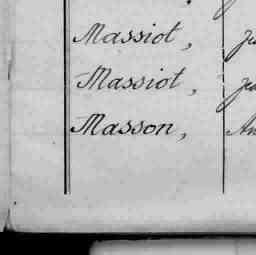 Massiot,
Massiot,
Masson,